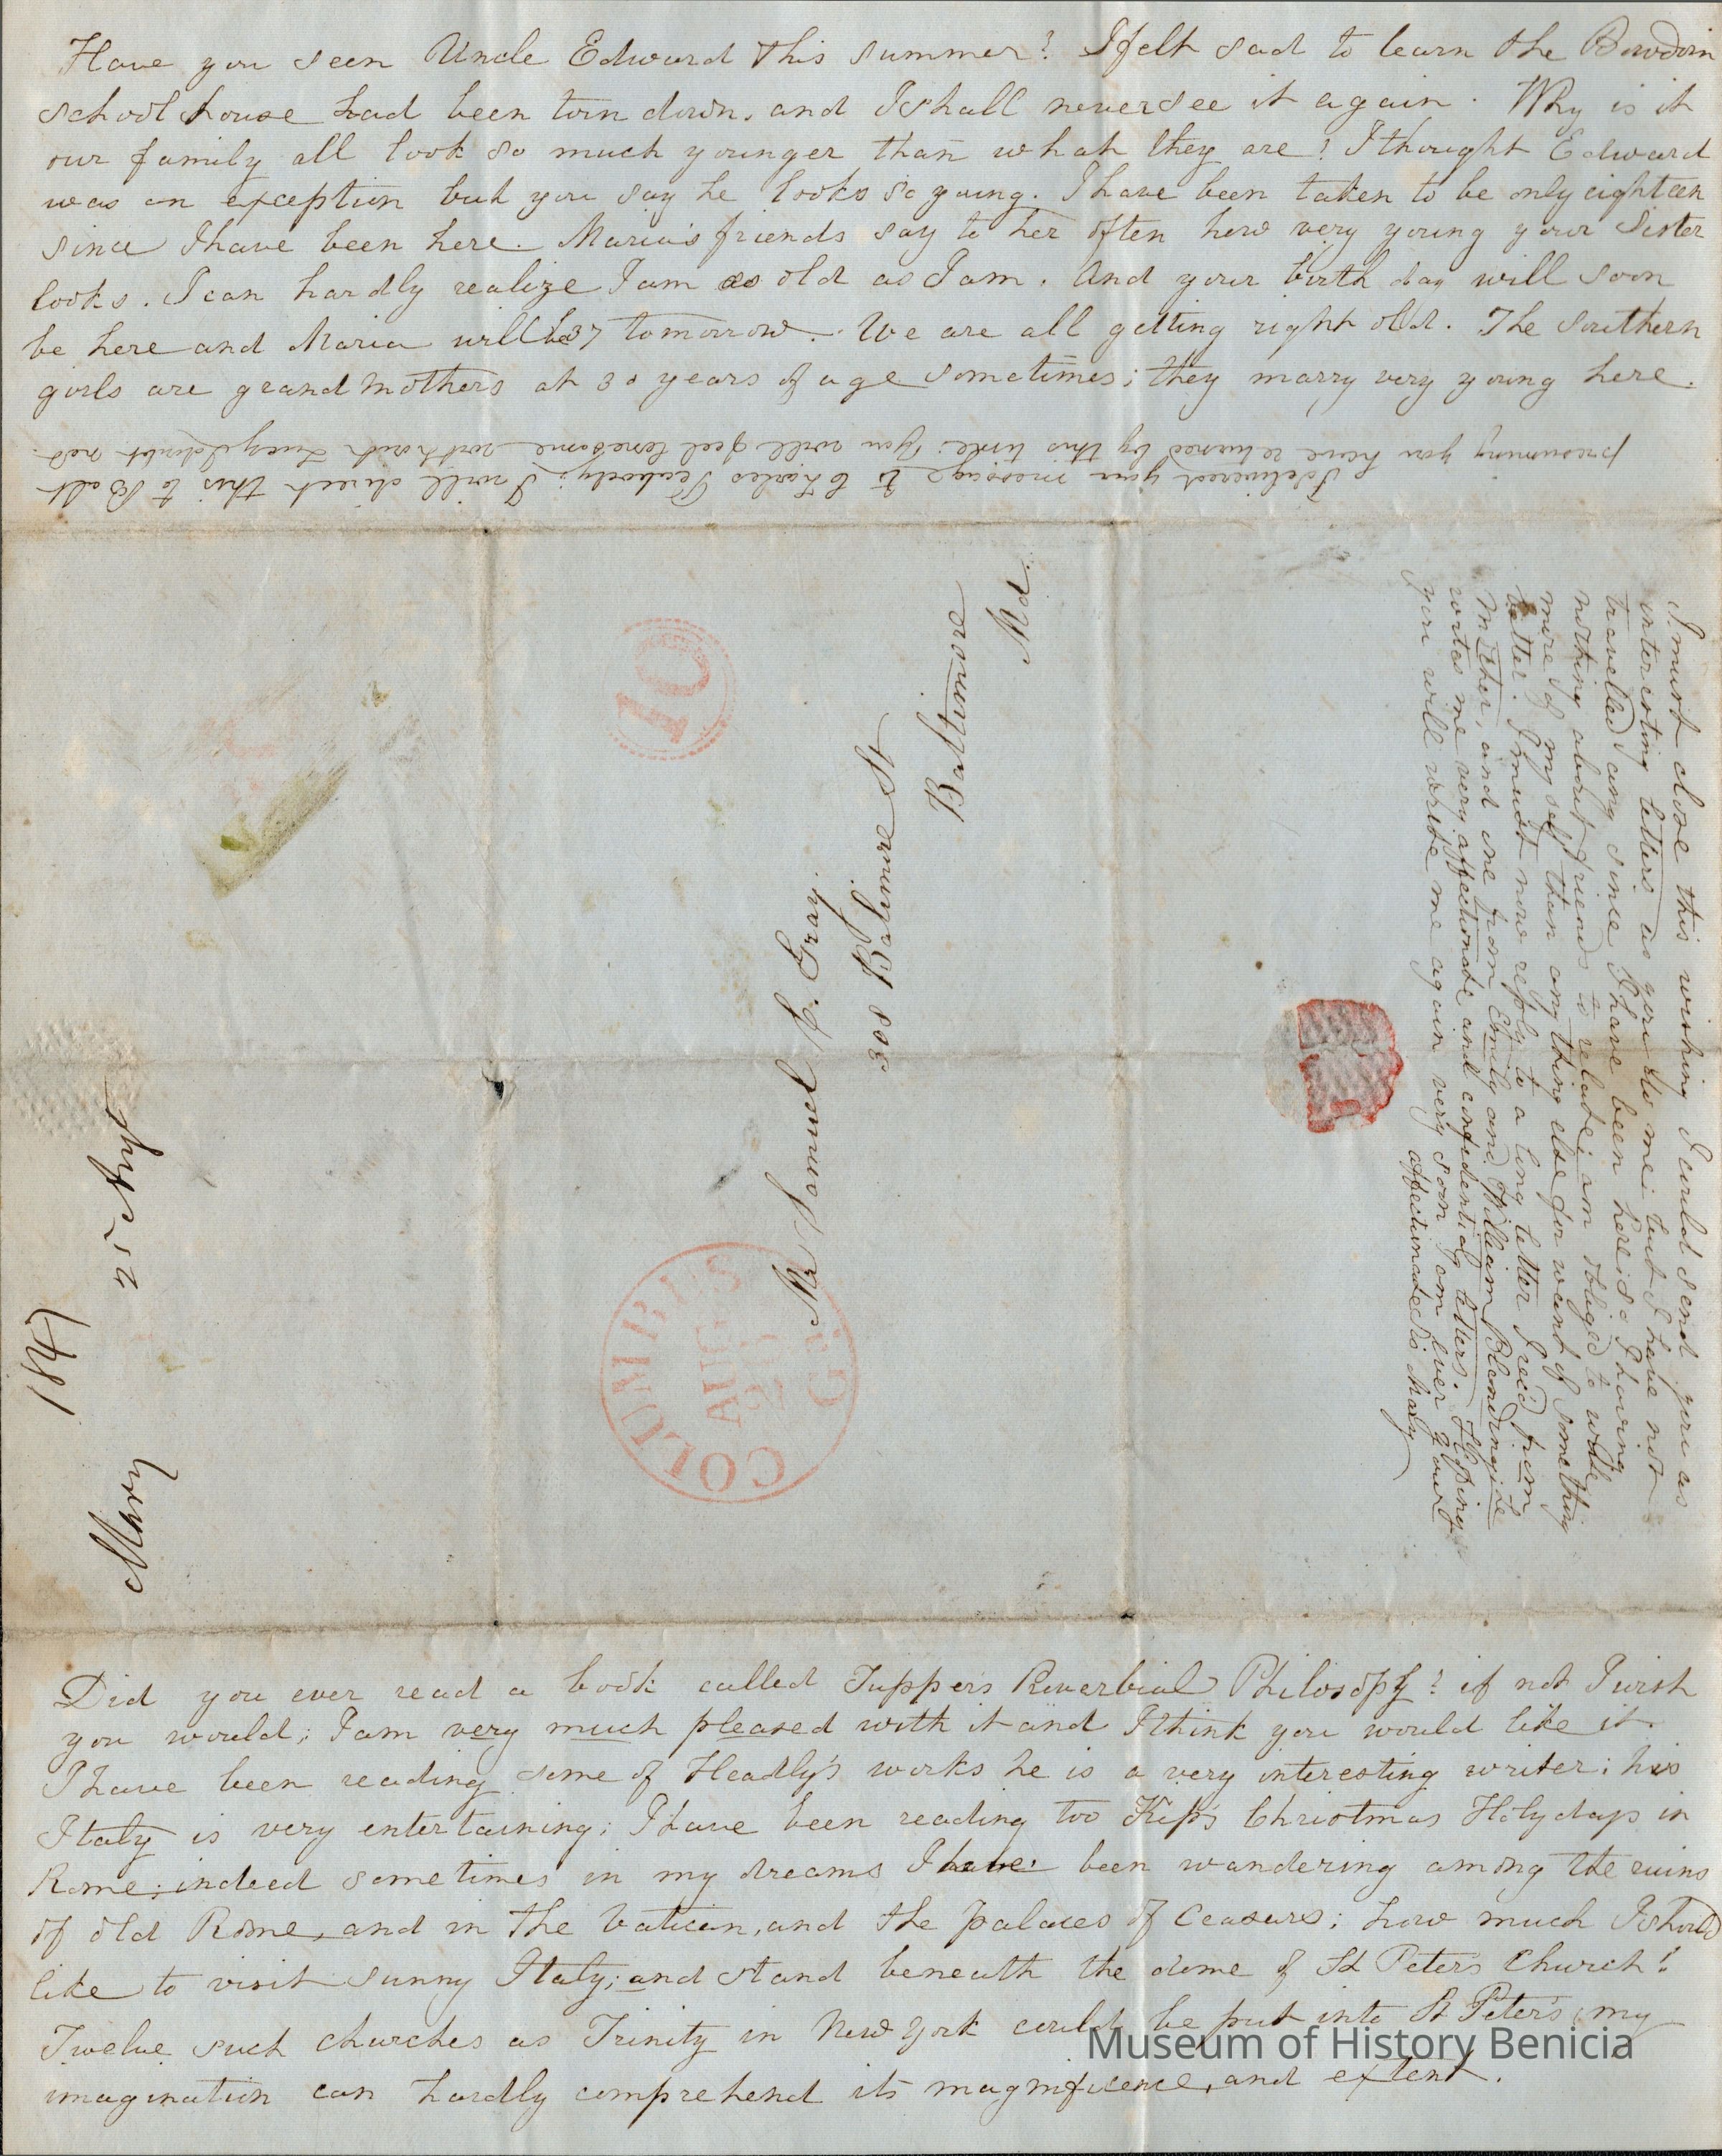 Have you seen Uncle Edward this summer? I felt sad to learn the Bowdoin
school house had been torn down, and I shall never see it again. Why is it
our family all look so much younger than what they are? I thought Edward
was an exception but you say he looks so young. I have been taken to be only eighteen
since I have been here. Maria's friends say to her often how very young your sister
looks. I can hardly realize I am as old as I am. And your birth day will soon
be here and Maria will be 37 tomorrow. We are all getting right old. The Southern
girls are grandmothers at 30 years of age sometimes; they marry very young here.
I delivered your message to Charles Peabody; I will direct this to Balt
presuming you have returned by this time. You will feel lonesome without Lucy I doubt not.
I must close this wishing I could send you as
interesting letters as you do me; but I have not
travelled any since I have been here; so I having
nothing about friends to relate; am obliged to write
more of my self than any thing else for want of something
better. I must now reply to a long letter I rec'd from
Mother, and one from Emily and William
writes me very affectionate and confidential letters. Hoping
you will write me again very soon I am ever your
affectionate sis Mary
10
Mr Samuel C. Gray.
308 Baltimore St
Baltimore
Md.
COLUMBUS GEO
AUG
Mary 1847
21 Augt
Did you ever read a book called Tupper's Proverbial Philosophy? if not I wish
you would; I am very much pleased with it and I think you would like it.
I have been reading some of Headly's works he is a very interesting writer; his
Italy is very entertaining; I have been reading too Kip's Christmas Holydays in
Rome; indeed sometimes in my dreams I have been wandering among the ruins
of old Rome, and in the Vatican, and the palaces of Ceasars; how much I should
like to visit sunny Italy; and stand beneath the dome of St Peter's Church!
Twelve such churches as Trinity in New York could be put into St Peter's; my
imagination can hardly comprehend its magnificence, and extent.
Museum of History Benicia